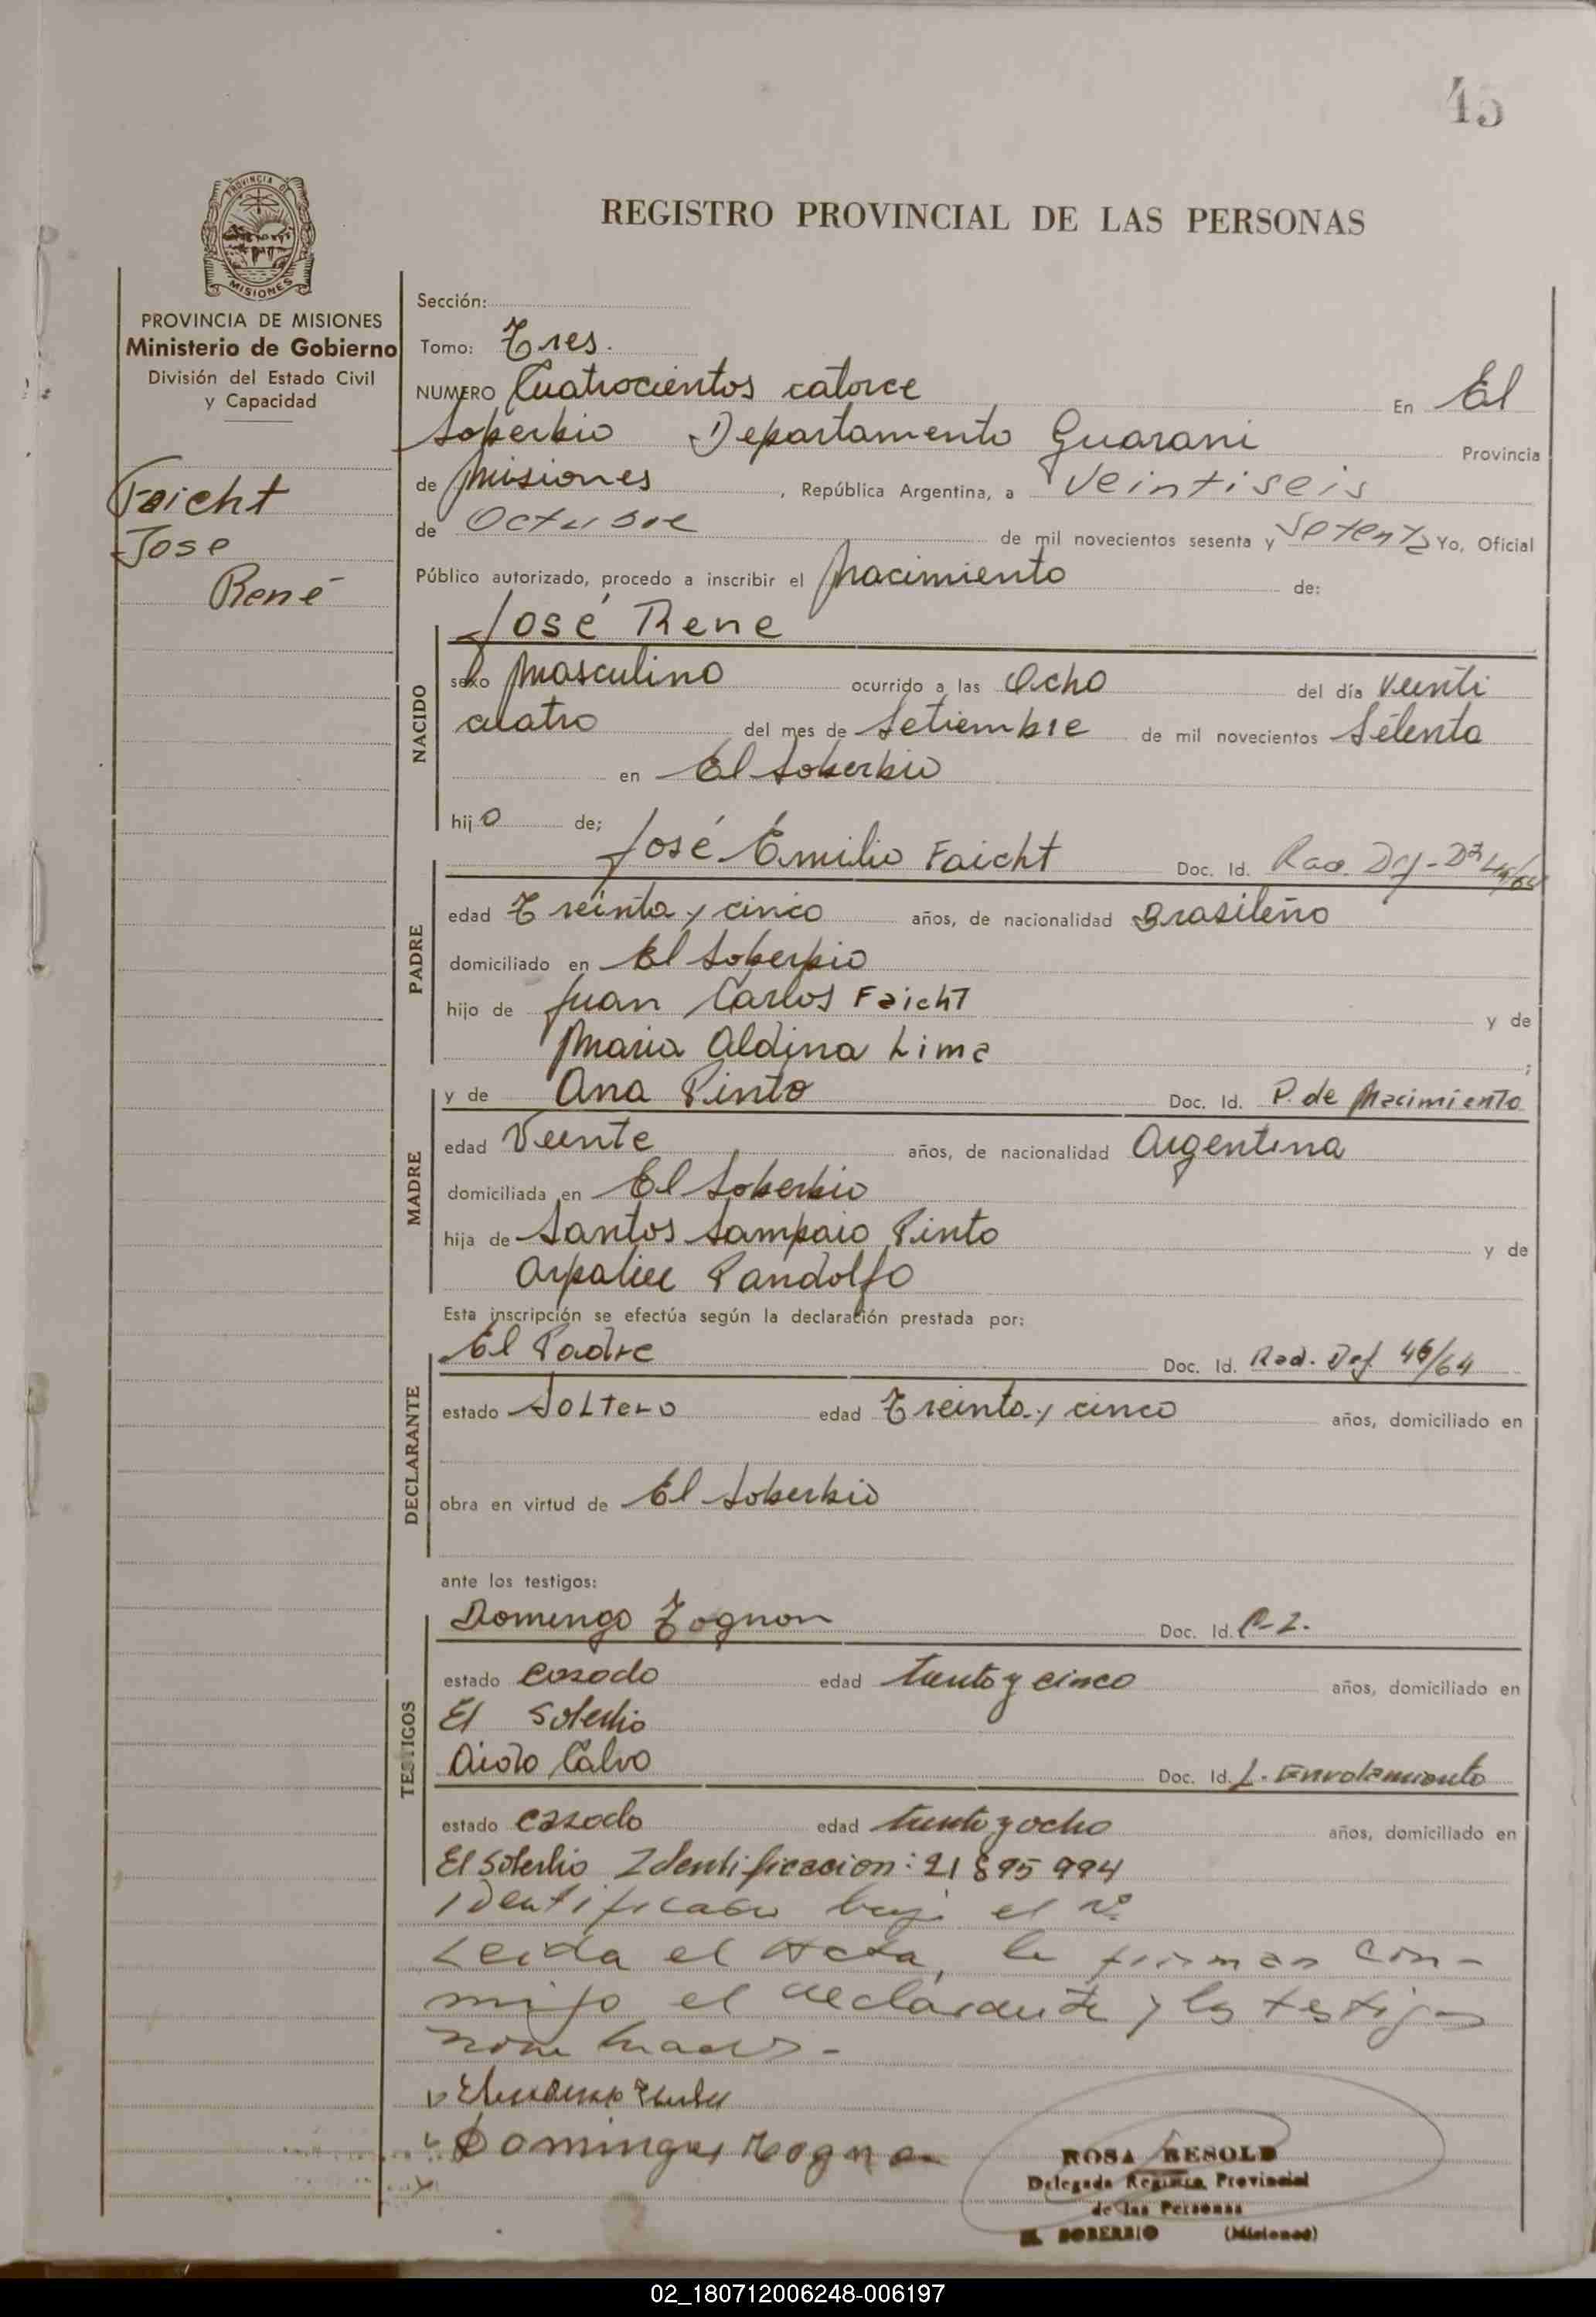 45
PROVINCIA DE
MISIONES
REGISTRO PROVINCIAL DE LAS PERSONAS
PROVINCIA DE MISIONES
Ministerio de Gobierno
División del Estado Civil
y Capacidad
Faicht
Jose
René
Sección:
Tomo: Tres.
NUMERO Cuatrocientos catorce En El
Soberbio Departamento Guarani Provincia
de Misiones, República Argentina, a Veintiseis
de Octubre de mil novecientos sesenta y Setenta Yo, Oficial
Público autorizado, procedo a inscribir el Nacimiento de:
José Rene
NACIDO
sexo Masculino ocurrido a las Ocho del día Veinti
cuatro del mes de Setiembre de mil novecientos Setenta
en El Soberbio
hijo de;
José Emilio Faicht Doc. Id. Rad. Def.
PADRE
edad Treinta y cinco años, de nacionalidad Brasileño
domiciliado en El Soberbio
hijo de Juan Carlos Faicht y de
Maria Aldina Lima ;
y de Ana Pinto Doc. Id. P. de Nacimiento
MADRE
edad Veinte años, de nacionalidad Argentina
domiciliada en El Soberbio
hija de Santos Sampaio Pinto y de
Pandolfo
Esta inscripción se efectúa según la declaración prestada por:
El Padre Doc. Id. Rad. Def. 46/64
DECLARANTE
estado Soltero edad Treinta y cinco años, domiciliado en
obra en virtud de El Soberbio
ante los testigos:
Domingo Tognon Doc. Id. C-I.
TESTIGOS
estado casado edad treinta y cinco años, domiciliado en
El Soberbio
Calvo Doc. Id. L. Enrolamiento
estado casado edad treinta y ocho años, domiciliado en
El Soberbio Identificacion: 21 895 994
Identificado bajo el Nº
Leida el Acta, la firman con-
migo el declarante y los testigos
nombrados.-
ROSA RESOLD
Delegada Registro Provincial
de las Personas
EL SOBERBIO (Misiones)
02_180712006248-006197